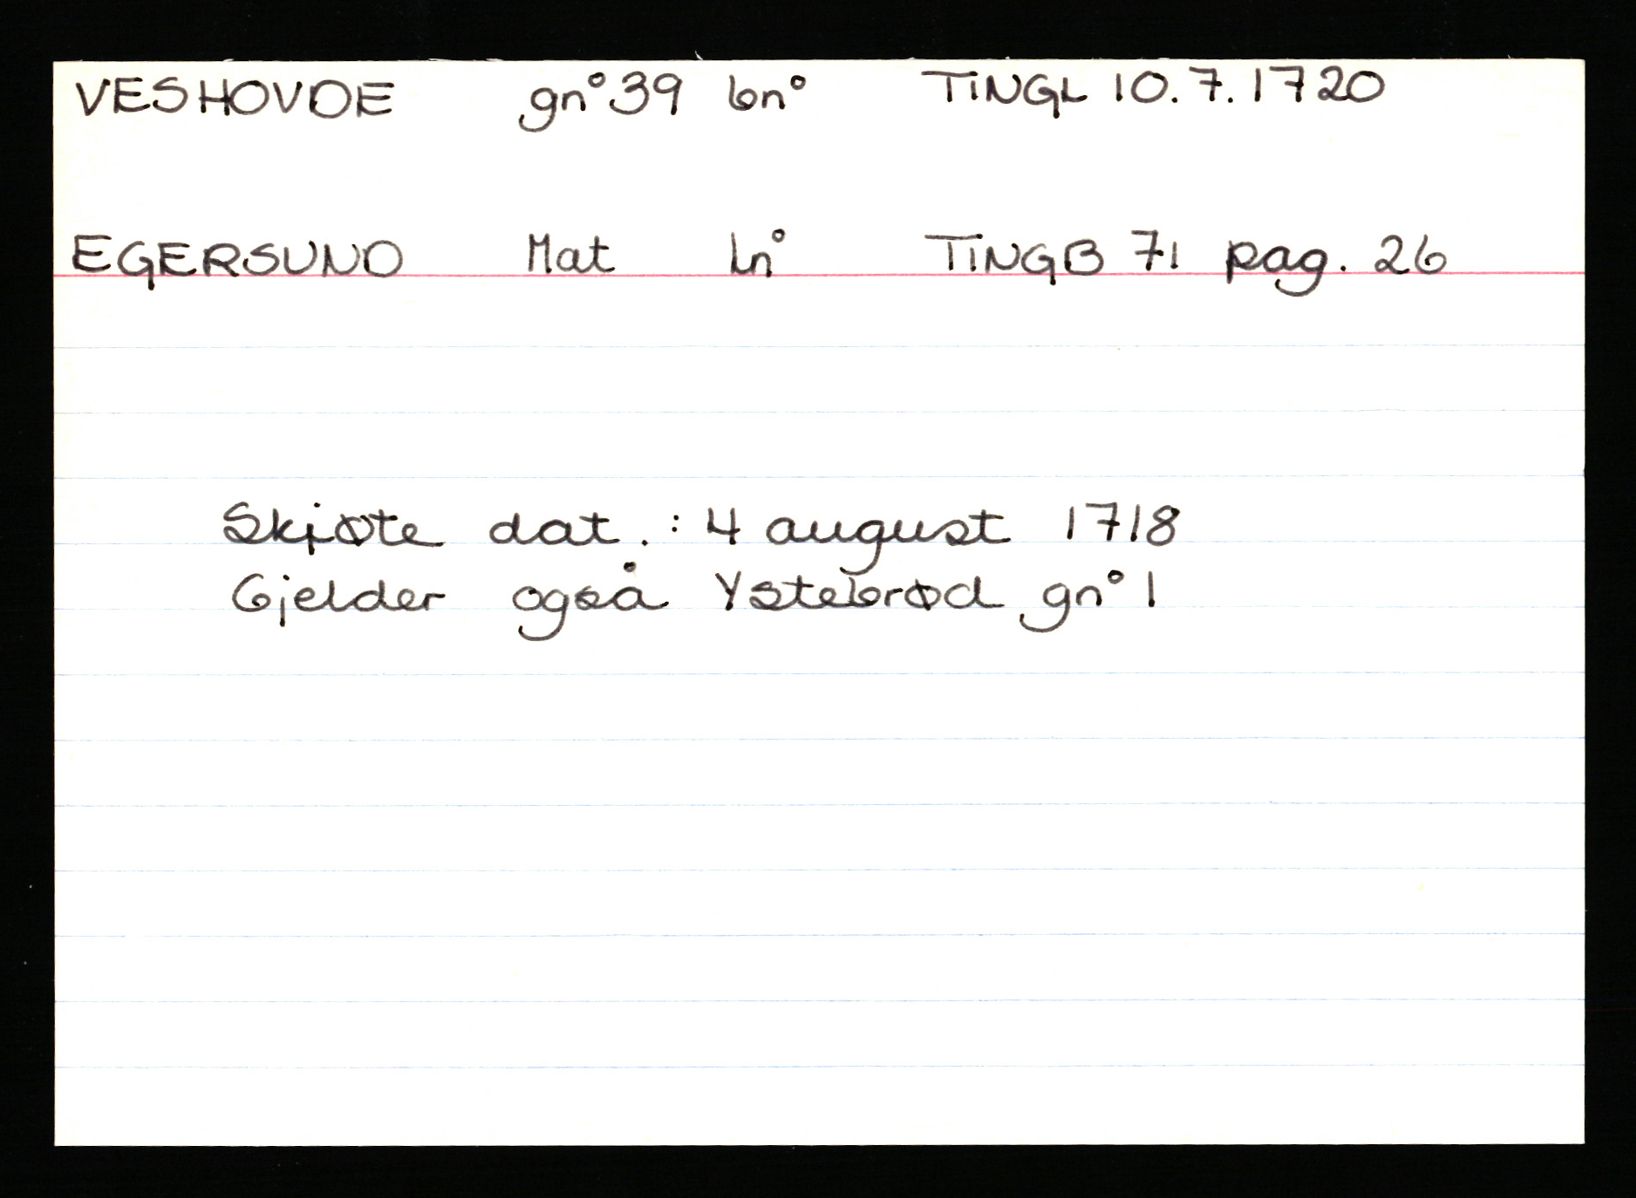 VESHOVDE gn° 39 bn° TINGL 10.7.1720
EGERSUND Mat Ln° TINGB 71 pag. 26
Skjøte dat.: 4 august 1718
Gjelder også Ystebrød gn° 1